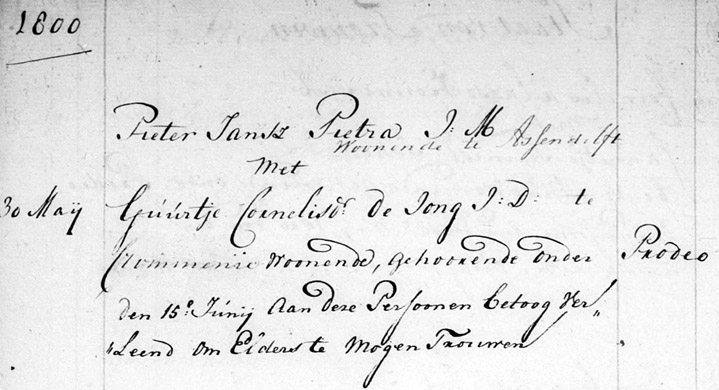 1800
Pieter Jansz Pietra J: M
Woonende te Assendelft
Met
30 Maÿ Guúrtje Cornelisdr. de Jong J: D: te
Crommenie Woonende, gehoorende onder Prodeo
den 15e. Júnij Aan deze Persoonen betoog Ver„
„Leend om Elders te Mogen Trouwen